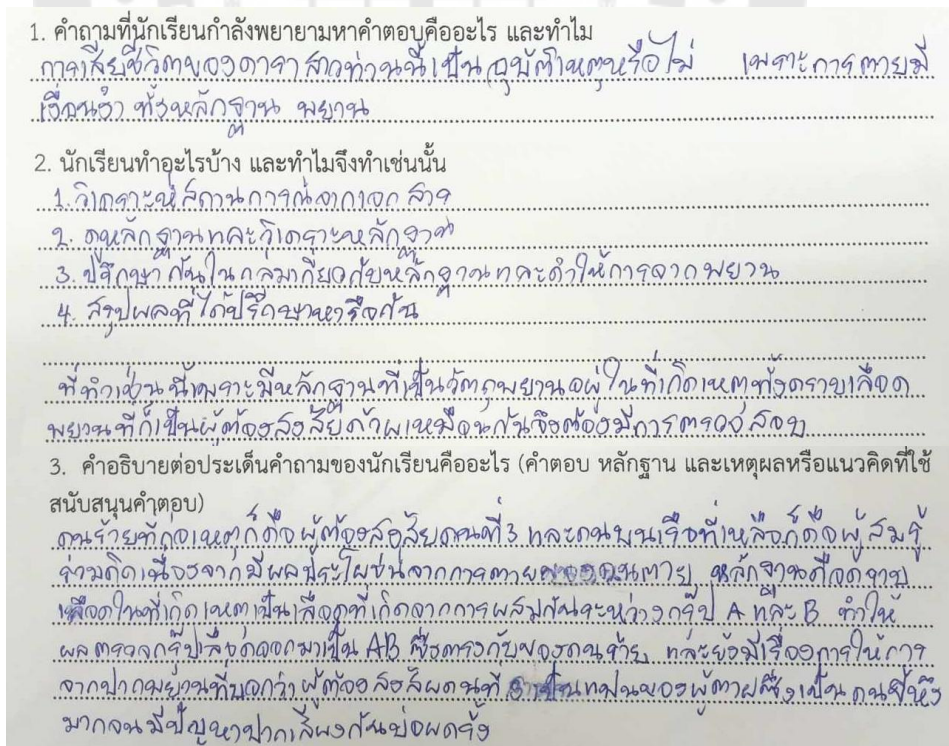 1. คำถามที่นักเรียนกำลังพยายามหาคำตอบคืออะไร และทำไม
การเสียชีวิตของดาราสาวท่านนี้เป็นอุบัติเหตุหรือไม่ เพราะการตายมี
เงื่อนงำ ทั้งหลักฐาน พยาน
2. นักเรียนทำอะไรบ้าง และทำไมจึงทำเช่นนั้น
1. วิเคราะห์สถานการณ์จากเอกสาร
2. ดูหลักฐานและวิเคราะหลักฐาน
3. ปรึกษากันในกลุ่มเกี่ยวกับหลักฐานและคำให้การจากพยาน
4. สรุปผลที่ได้ปรึกษาหารือกัน
ที่ทำเช่นนี้เพราะมีหลักฐานที่เป็นวัตถุพยานอยู่ในที่เกิดเหตุทั้งคราบเลือด
พยานที่ก็เป็นผู้ต้องสงสัยด้วยเหมือนกันจึงต้องมีการตรวจสอบ
3. คำอธิบายต่อประเด็นคำถามของนักเรียนคืออะไร (คำตอบ หลักฐาน และเหตุผลหรือแนวคิดที่ใช้
สนับสนุนคำตอบ)
คนร้ายที่ก่อเหตุก็คือผู้ต้องสงสัยคนที่3 และคนบนเรือที่เหลือก็คือผู้สมรู้
ร่วมคิดเนื่องจากมีผลประโยชน์จากการตายของคนตาย หลักฐานคือคราบ
เลือดในที่เกิดเหตุเป็นเลือดที่เกิดจากการผสมกันระหว่างกรุ๊ป A และ B ทำให้
ผลตรวจกรุ๊ปเลือดออกมาเป็น AB ซึ่งตรงกับของคนร้าย และยังมีเรื่องการให้การ
จากปากพยานที่บอกว่าผู้ต้องสงสัยคนที่ 3 เป็นแฟนของผู้ตายซึ่งเป็นคนขี้หึง
มากจนมีปัญหาปากเสียงกันบ่อยครั้ง